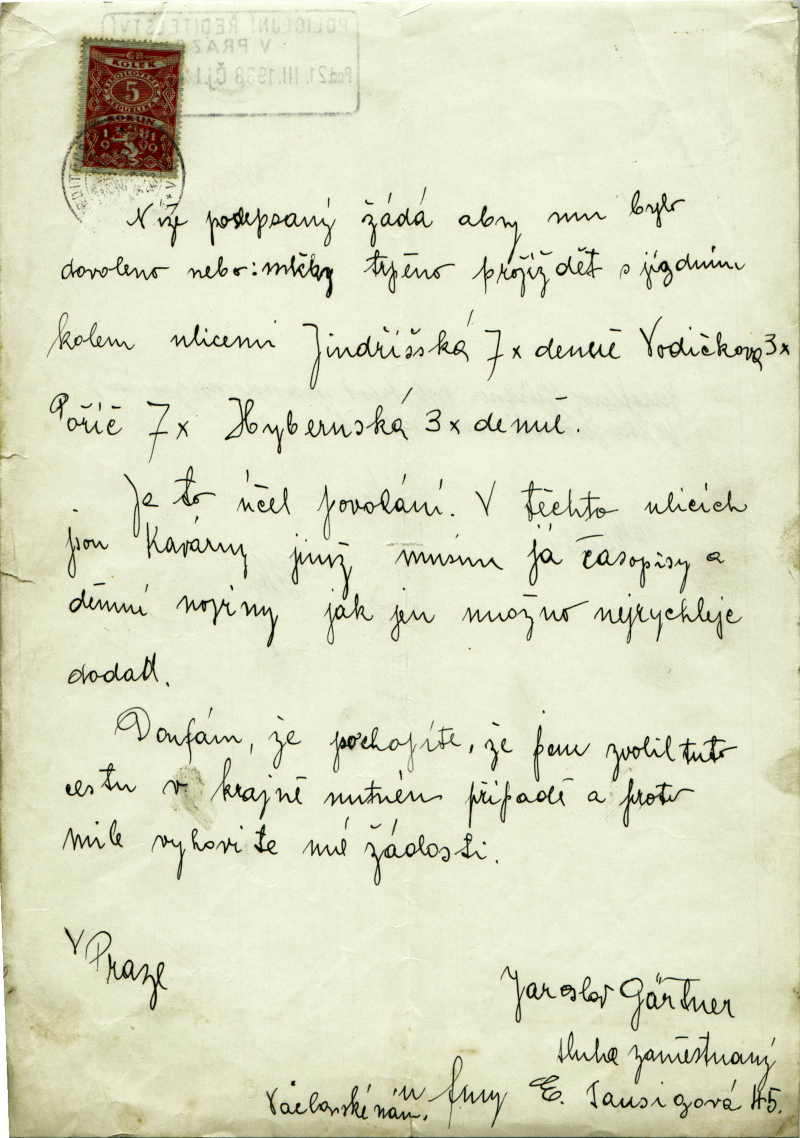 POLICEJNÍ ŘEDITELSTVÍ
V PRAZE
Pod. 21. III. 1938 Čj.
KOLEK
5
KORUN
Níže podepsaný žádá aby mu bylo
dovoleno nebo: mlčky trpěno projíždět s jízdním
kolem ulicemi Jindřišská 7x denně Vodičkova 3x
Poříč 7x Hybernská 3x denně.
Je to účel povolání. V těchto ulicích
jsou Kavárny jimž musím já časopisy a
denní noviny jak jen možno nejrychleje
dodat.
Doufám, že pochopíte, že jsem zvolil tuto
cestu v krajně nutném případě a proto
mile vyhovíte mé žádosti.
V Praze
Jaroslav Gärtner
sluha zaměstnaný
Václavské nám. u firmy E. Tausigová 45.